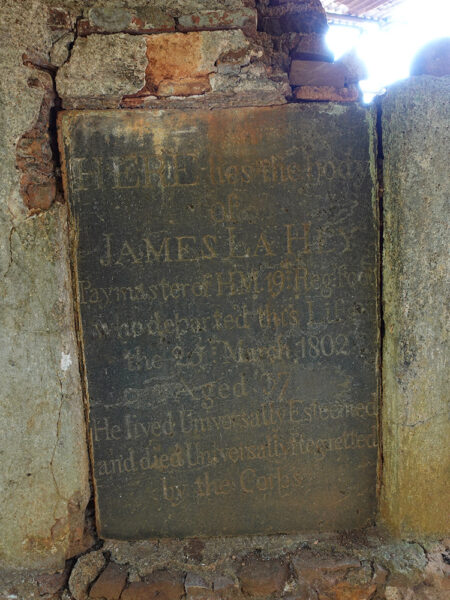 HERE lies the body
of
JAMES LA HEY
Paymaster of H.M. 19th Regt Foot
who departed this Life
the March 1802
Aged 37
He lived Universally Esteemed
and died Universally Regretted
by the Corps